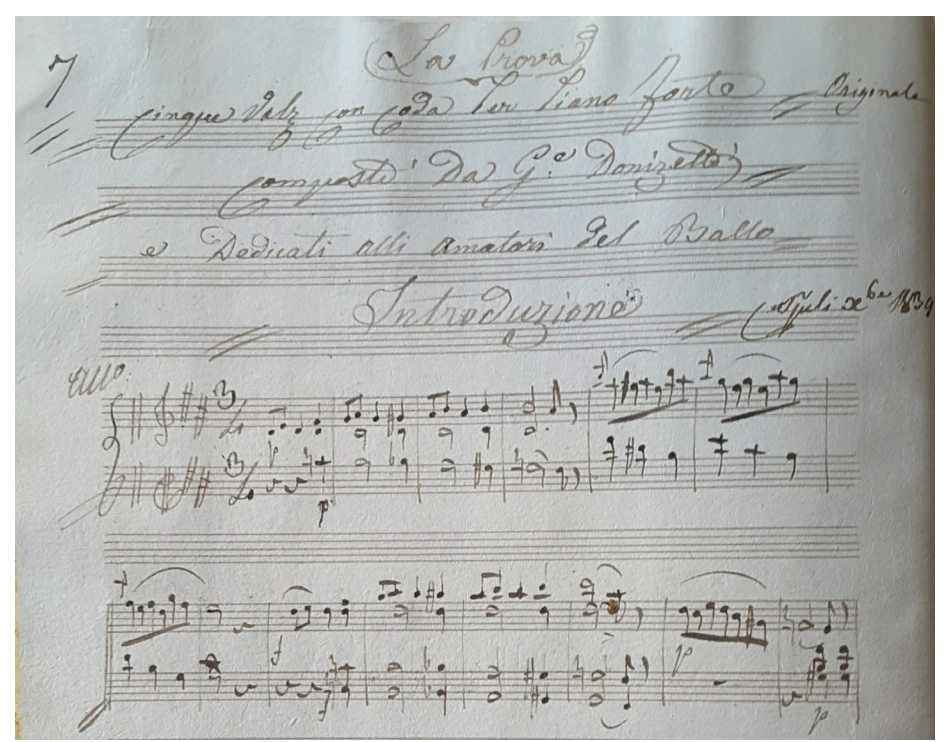 7
La Prova
Cinque Valz con Coda Per Piano forte Originale
Composti Da G.e Donizetti
e Dedicati alli Amatori del Ballo
Introduzione
xbre 1839
All.o
p
f
f
p
p